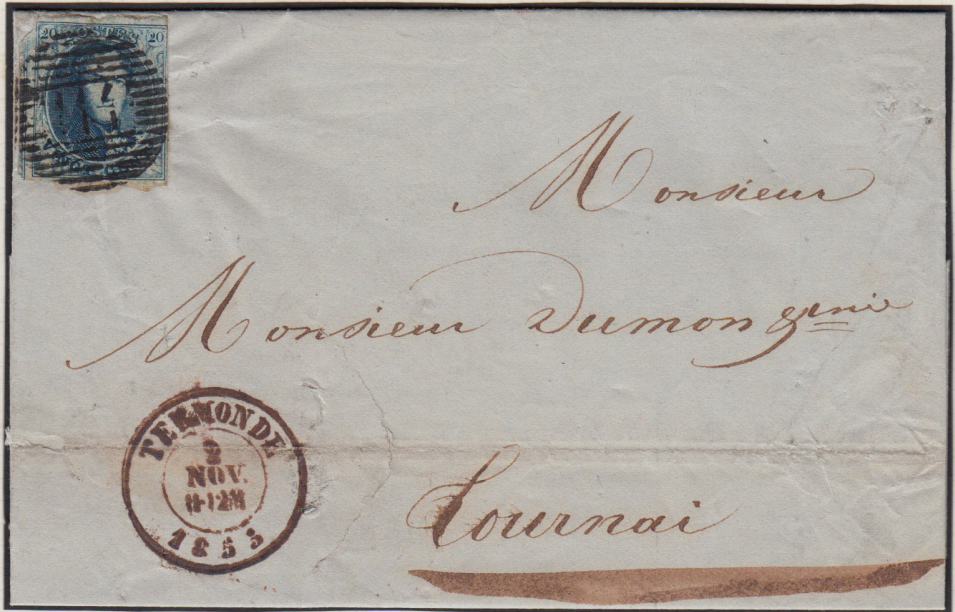 20 POSTES 20
Monsieur
Monsieur Dumon &
TERMONDE
2
NOV.
1853
Tournai